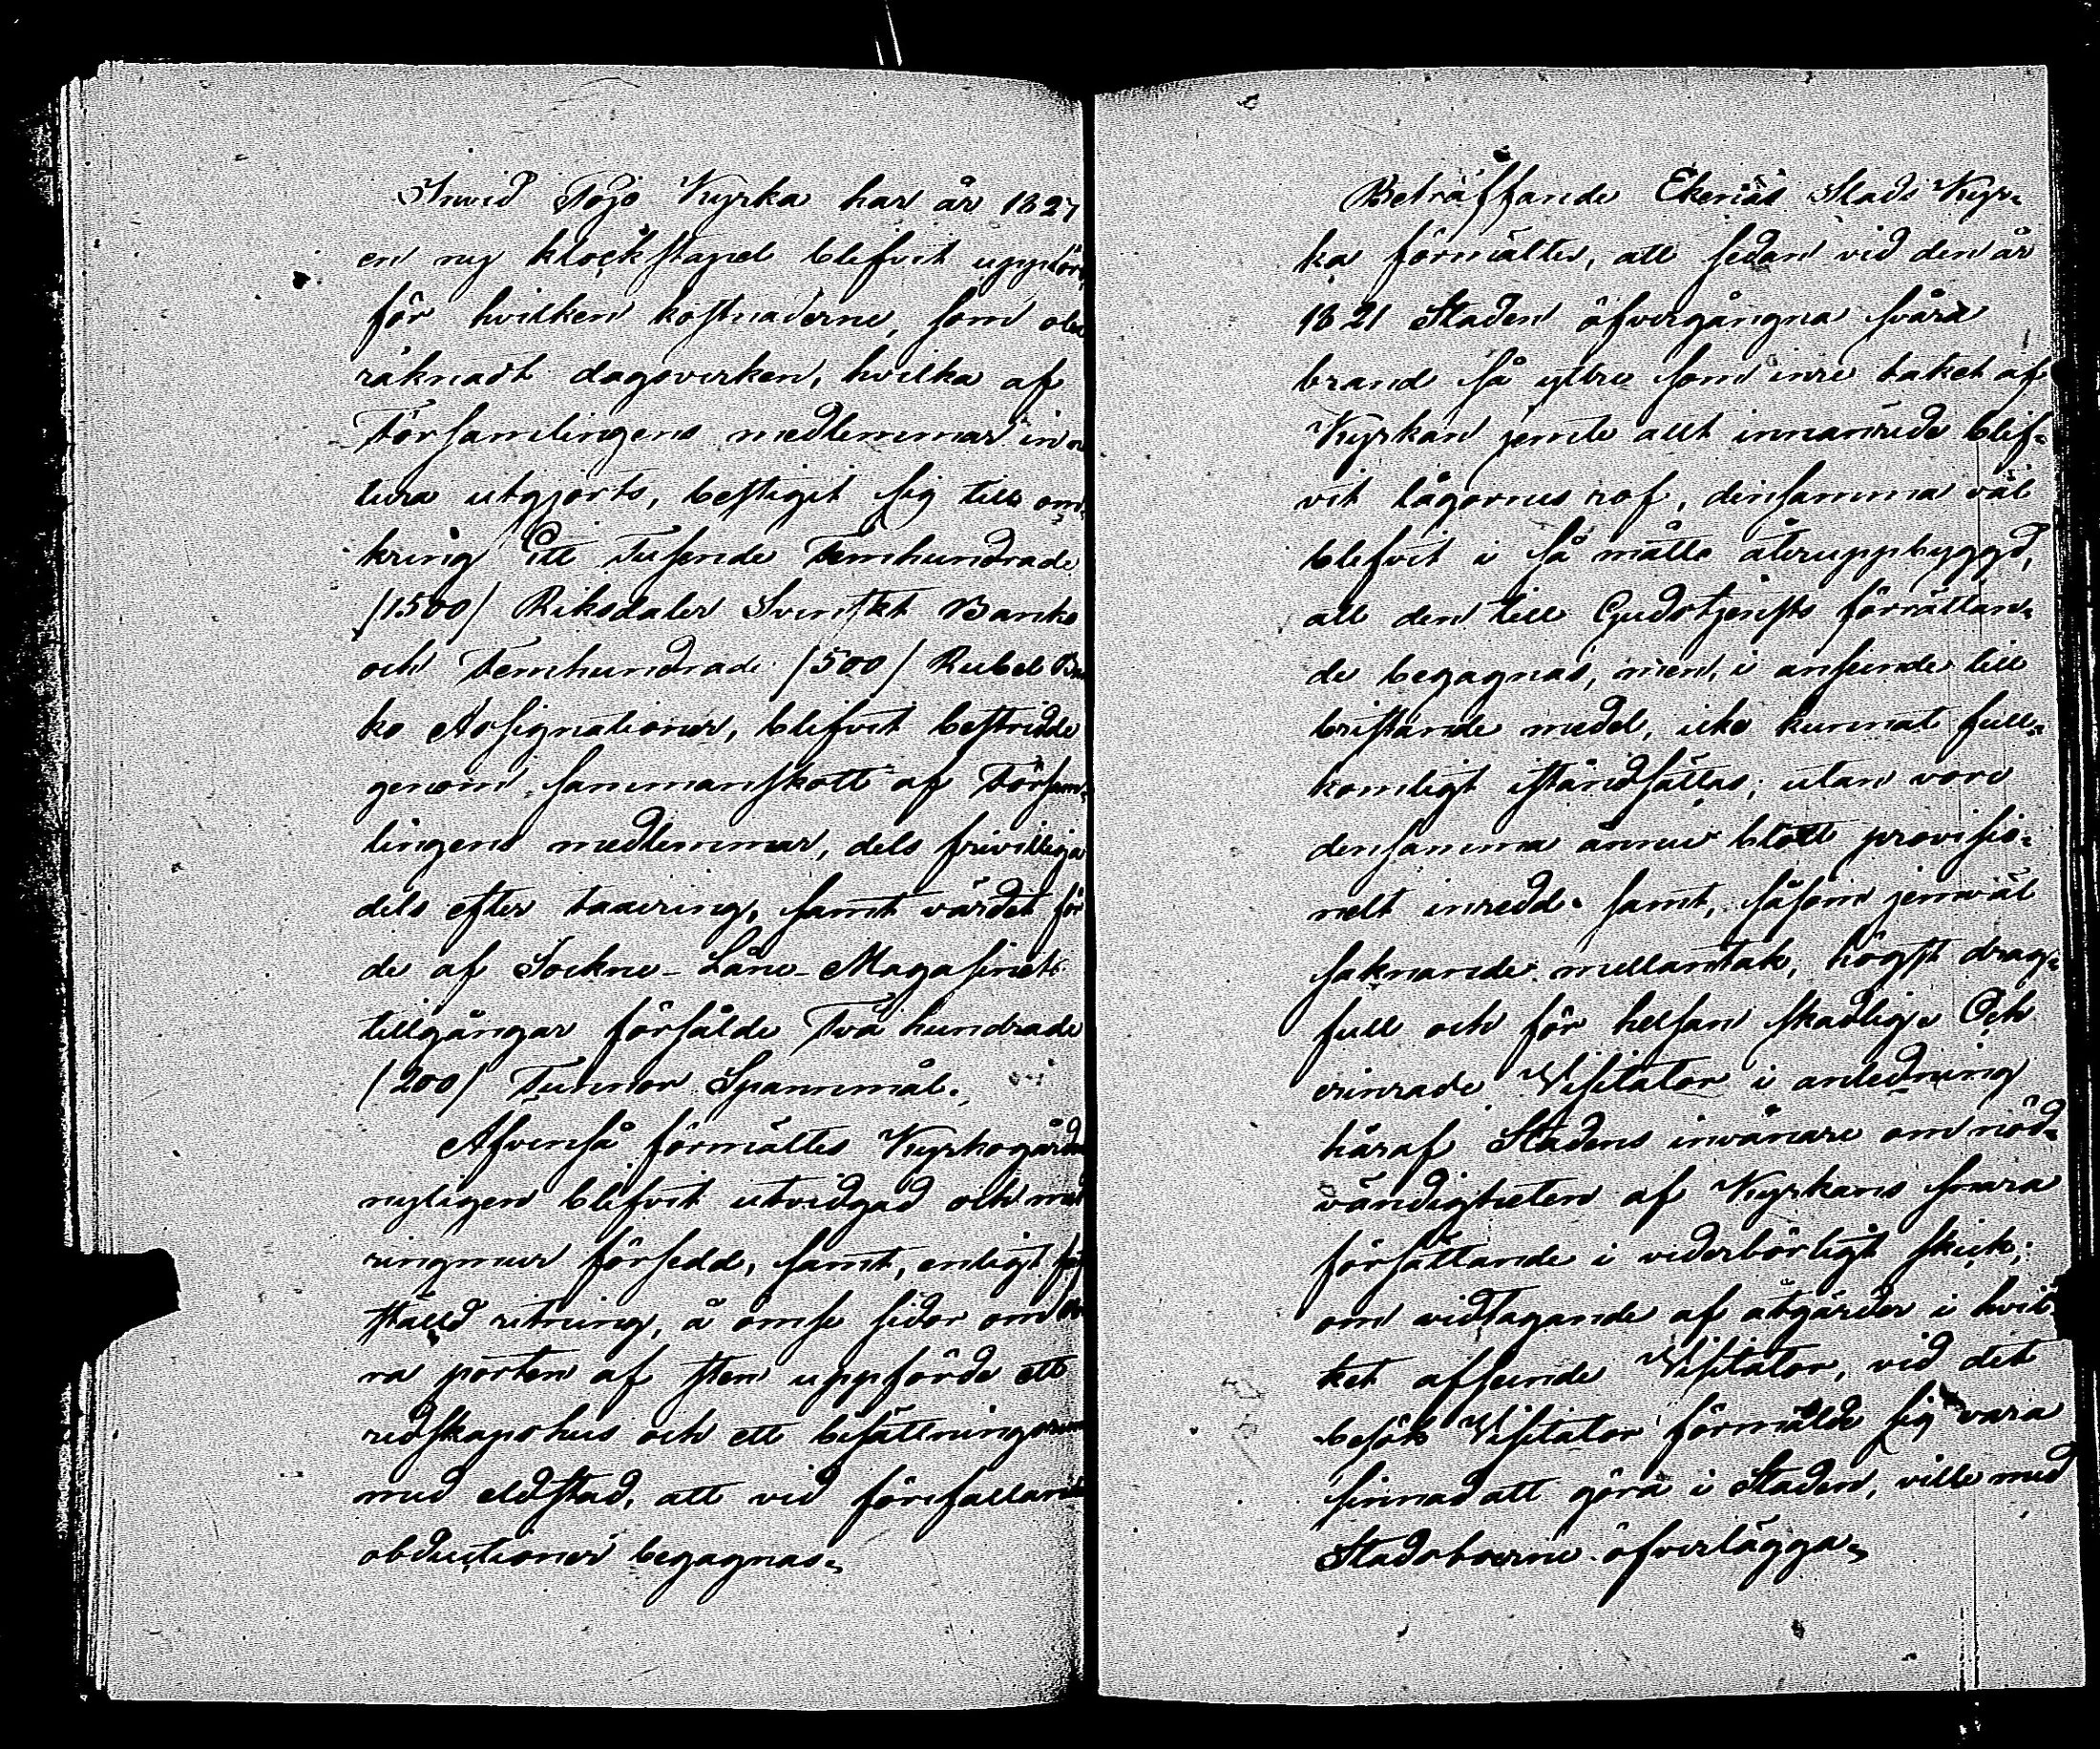 Invid Pojo Kyrka har år 1827
en ny klockstapel blifvit uppförd,
för hvilken kostnaderne, som obe
räknadt dagsverken, hvilka af
Församlingens medlemmar in na
tura utgjorts, bestigit sig till om„
kring Ett Tusende Femhundrade
/1500/ Riksdaler Svenskt Banko
och Femhundrade /500/ Rubel Ban
ko Assignationer, blifvit bestridde
genom sammanskott af Försam„
lingens medlemmar, dels frivilliga
dels efter taxering, samt värdet för
de af Sockne-Låne-Magasinets
tillgångar försålde Två hundrade
/200/ Tunnor Spannmål.
Äfvenså förmältes Kyrkogården
nyligen blifvit utvidgad och med
ringmur försedd, samt, enligt fast
ställd ritning, å ömse sidor om
ra porten af sten uppförde ett
redskapshus och ett besättningsrum
med eldstad, att vid förefallande
obductioner begagnas„
Beträffande Ekenäs Stads Kyr„
ka förmältes, att sedan vid den år
1821 Staden öfvergångna svåra
brand så yttre som inre taket af
Kyrkan jemte allt innanrede blif„
vit lågornes rof, densamma väl
blefvit i så måtto återuppbyggd,
att den till Gudstjensts förrättan„
de begagnas, men, i anseende till
bristande medel, icke kunnat full„
komligt iståndsättas, utan vore
densamma ännu blott provisio„
nelt inredd. samt, såsom jemväl
saknande mellantak, högst drag„
full och för helsan skadlig. Och
erinrade Visitator i anledning
häraf Stadens invånare om nöd„
vändigheten af Kyrkans snara
försättande i vederbörligt skick;
om vidtagande af åtgärder i hvil
ket afseende Visitator, vid det
besök Visitator förmälde sig vara
sinnad att göra i Staden, ville med
Stadsboerne öfverlägga„